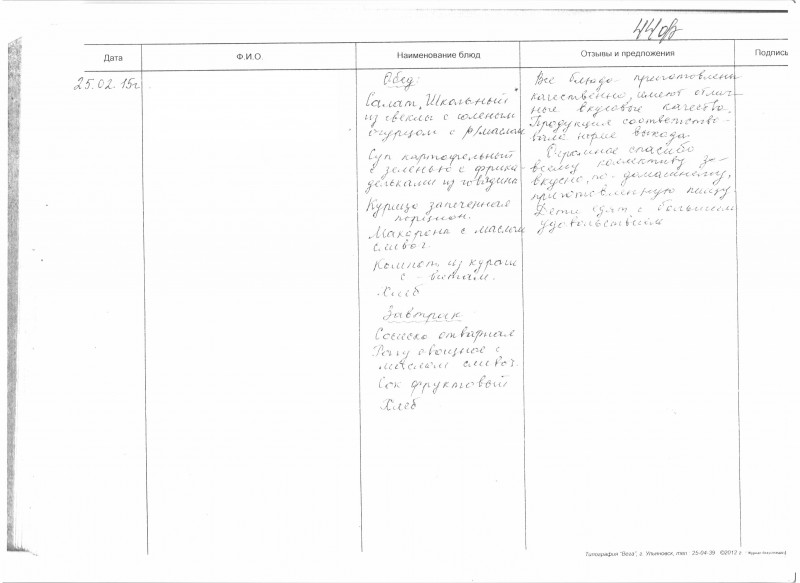 Дата
Ф.И.О.
Наименование блюд
Отзывы и предложения
Подпись
25.02.15г
Обед:
Салат "Школьный"
из свеклы с соленым
огурцом с р/маслом
Суп картофельный
с зеленью с фрика-
дельками из говядины
Курица запеченная
порцион.
Макароны с маслом
сливоч.
Компот из кураги
с - витам.
Хлеб
Завтрак
Сосиска отварная
Рагу овощное с
маслом сливоч.
Сок фруктовый
Хлеб
Все блюда приготовлены
качественно, имеют отлич-
ные вкусовые качества.
Продукция соответство-
вала норме выхода.
Огромное спасибо
всему коллективу за
вкусно, по-домашнему,
приготовленную пищу.
Дети едят с большим
удовольствием
Типография "Вега", г. Ульяновск, тел. 25-04-39 ©2012 г.